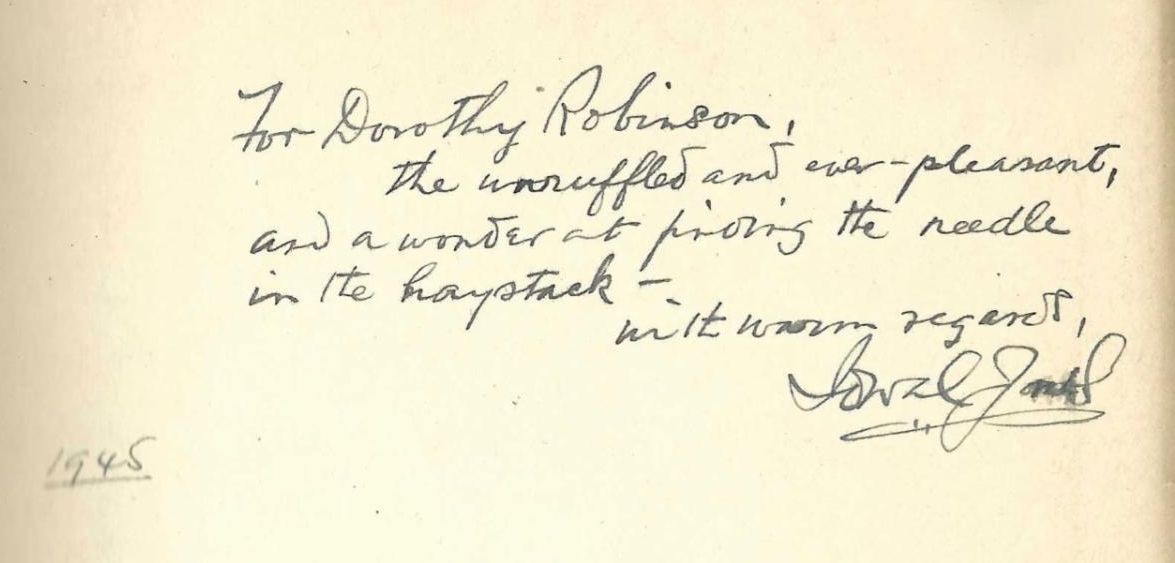 For Dorothy Robinson,
the unruffled and ever-pleasant,
and a wonder at finding the needle
in the haystack –
with warm regards,
1945